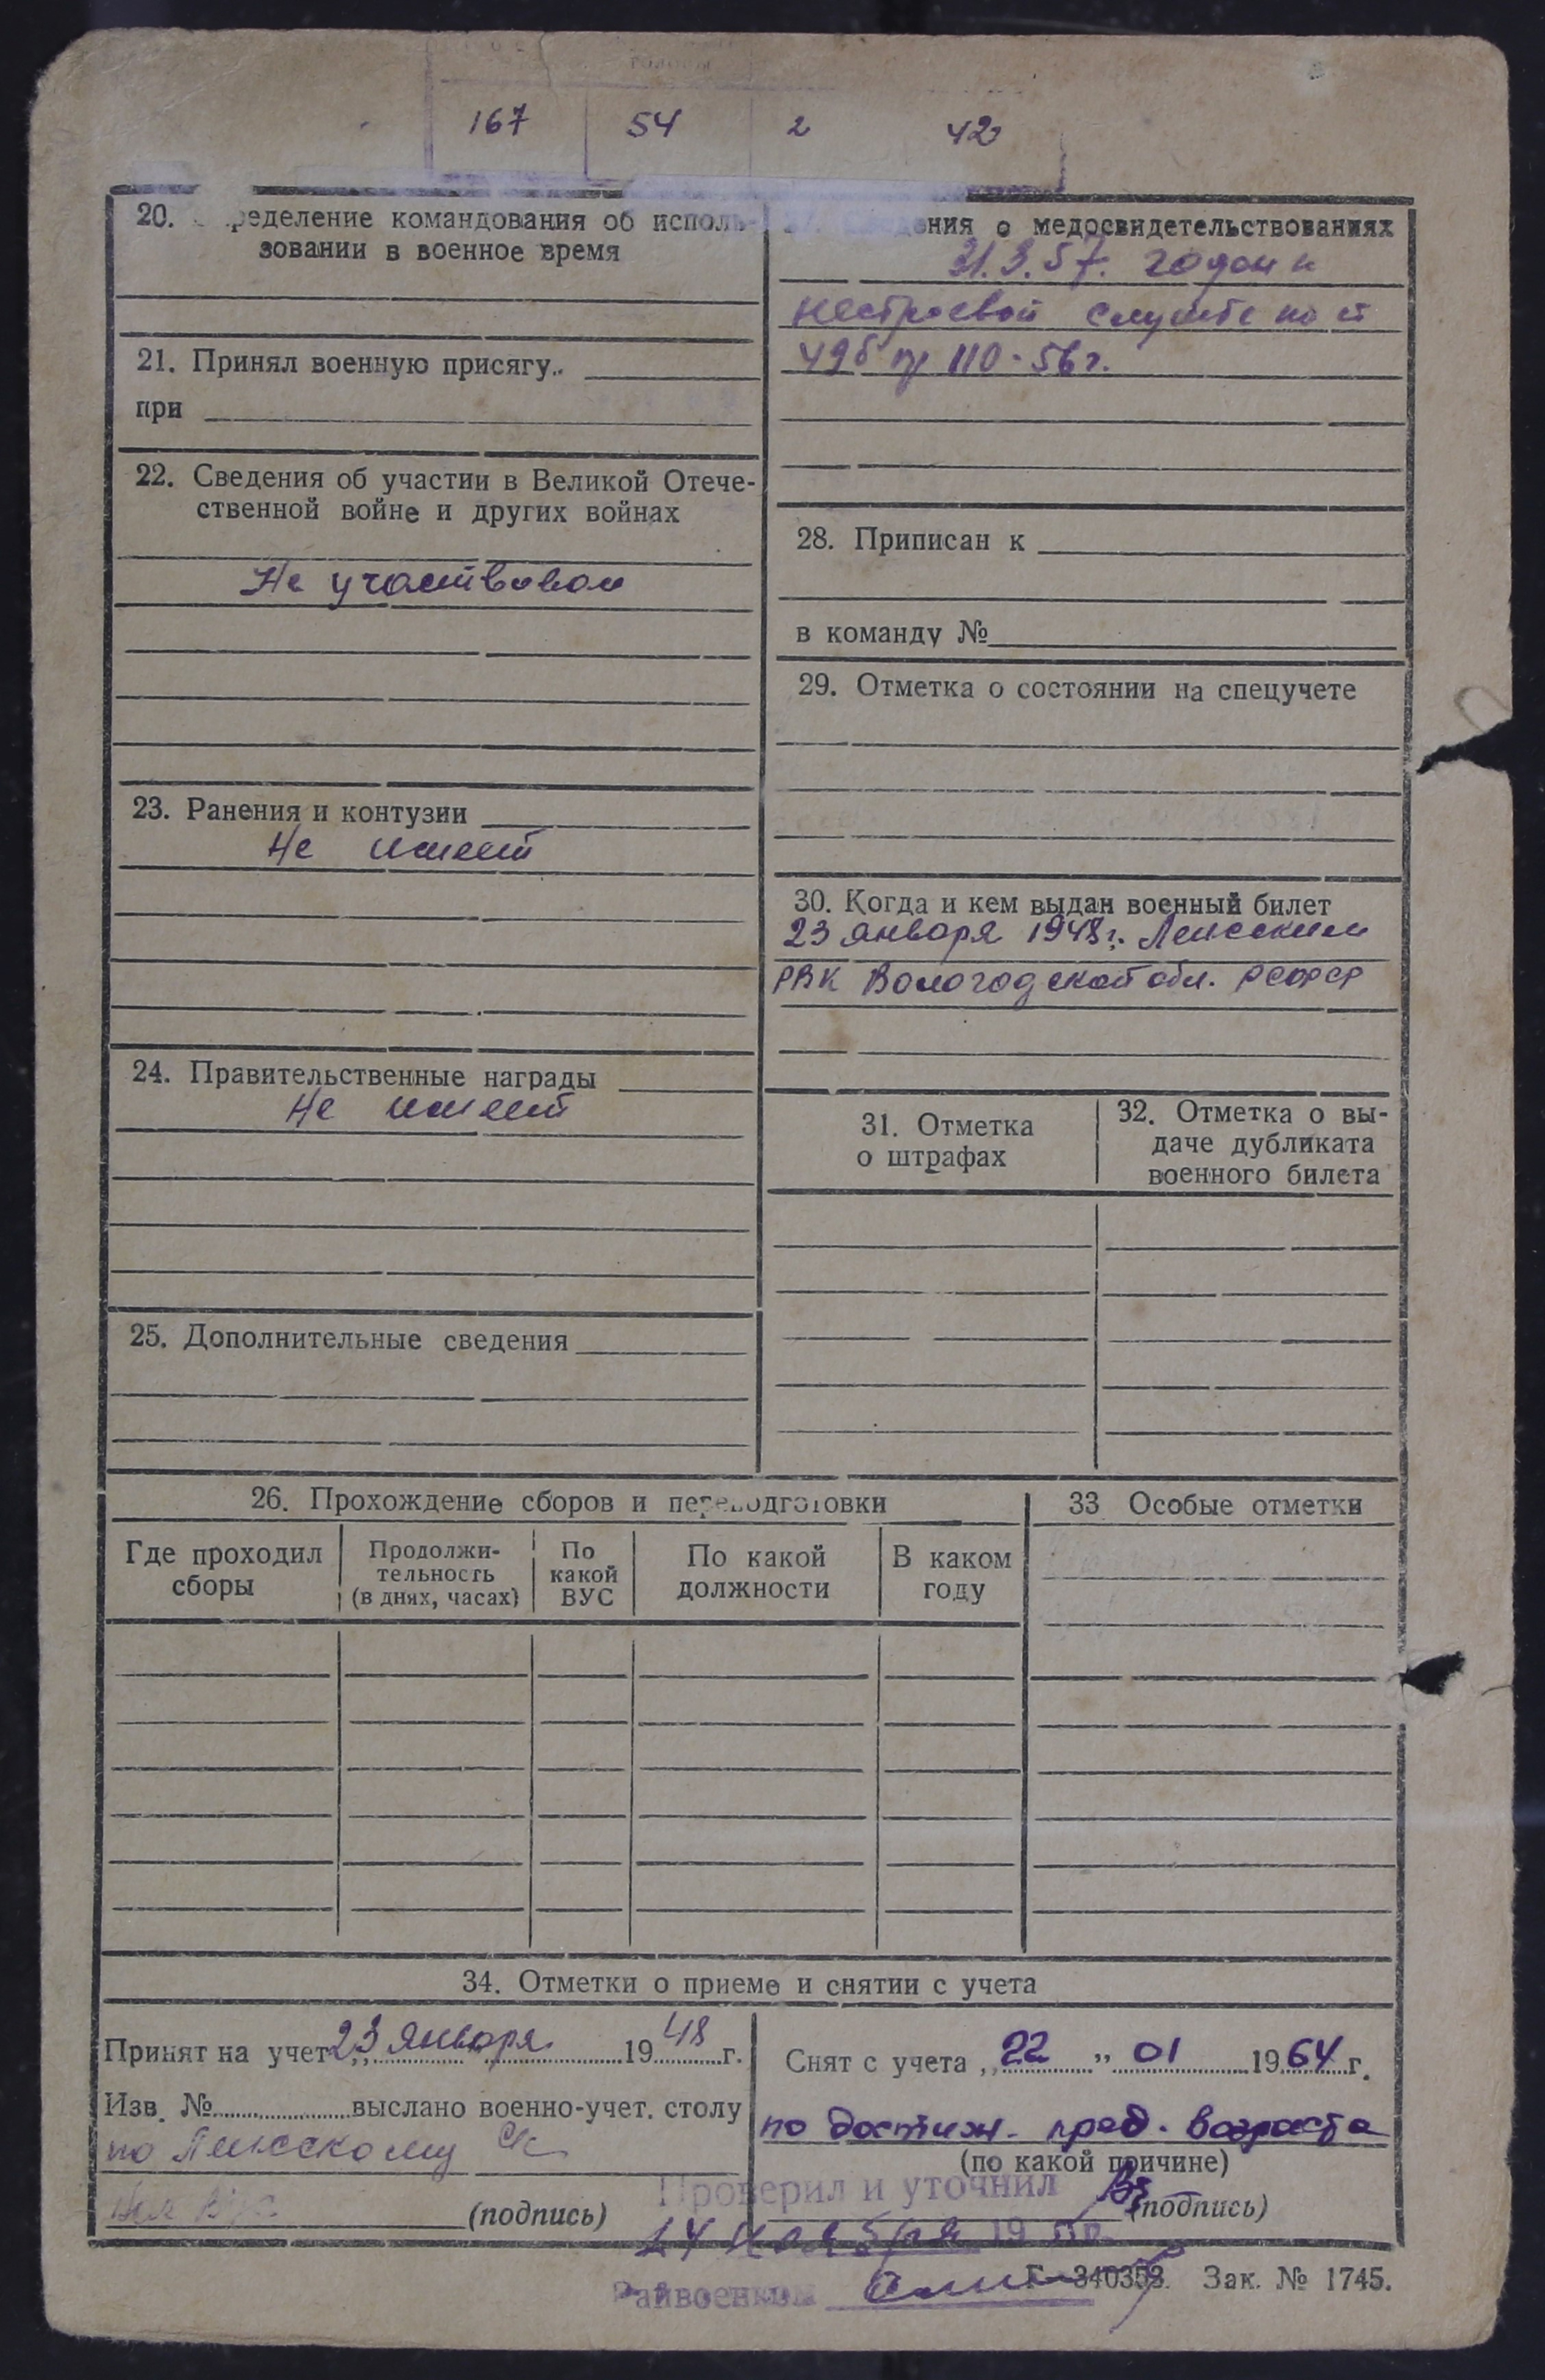 167 54 2 42
20. ределение командования об исполь-
зовании в военное время
21. Принял военную присягу
при
22. Сведения об участии в Великой Отече-
ственной войне и других войнах
Не участвовал
23. Ранения и контузии
Не имеет
24. Правительственные награды
Не имеет
25. Дополнительные сведения
ения о медосвидетельствованиях
31.3.57. годен к
нестроевой службе по ст
49б пр 110-56г.
28. Приписан к
в команду №
29. Отметка о состоянии на спецучете
30. Когда и кем выдан военный билет
23 января 1948г. Ленским
РВК Вологодской обл. РСФСР
31. Отметка
о штрафах
32. Отметка о вы-
даче дубликата
военного билета
26. Прохождение сборов и переподготовки
Где проходил
сборы
Продолжи-
тельность
(в днях, часах)
По
какой
ВУС
По какой
должности
В каком
году
33 Особые отметки
34. Отметки о приеме и снятии с учета
Принят на учет „23 января 1948 г.
Изв. № выслано военно-учет. столу
по Ленскому с/с
(подпись)
Снят с учета „22" 01 1964 г.
по достиж. пред. возраста
(по какой причине)
(подпись)
Проверил и уточнил
24 ноября 19
Райвоенком
Г—340353. Зак. № 1745.